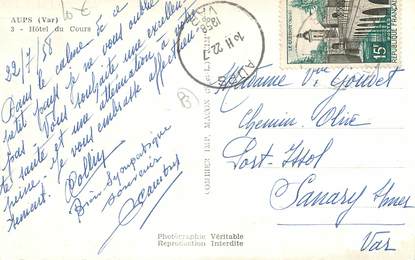 AUPS (Var)
3 - Hôtel du Cours
22/7/58
Dans le calme de ce
petit pays je ne vous oublie
pas. Vous souhaite une excellente
santé et une atténuation à votre
peine
Je vous embrasse affectueu-
sement.
Bien Sympathique
Souvenir
COMBIER IMP. MACON
AUPS
VAR
22-7
1958
REPUBLIQUE FRANÇAISE
15F
Madame Vve Gouvet
Chemin Olive
Port-Issol
Sanary s/mer
Var
Photographie Véritable
Reproduction Interdite